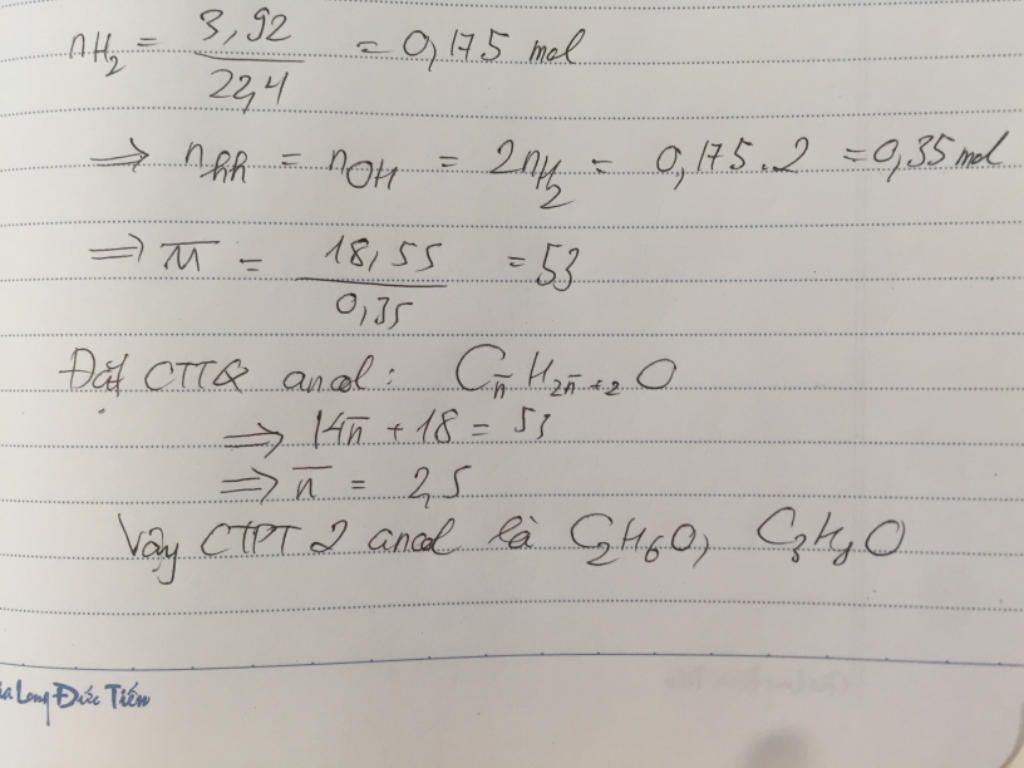 nH₂ = 3,92 / 22,4 = 0,175 mol
⇒ nhh = nOH = 2nH₂ = 0,175.2 = 0,35 mol
⇒ M̅ = 18,55 / 0,35 = 53
Đặt CTTQ ancol: Cn̅H2n̅+2O
⇒ 14n̅ + 18 = 53
⇒ n̅ = 2,5
Vậy CTPT 2 ancol là C₂H₆O, C₃H₈O
Long Đức Tiến